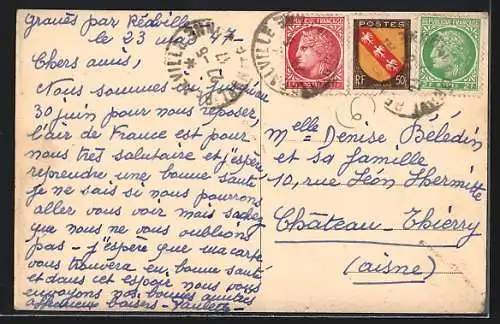 Graves par Réalville
le 23 mai 47
Chers amis,
Nous sommes ici jusqu'au
30 juin pour nous reposer,
l'air de France est pour
nous très salutaire et j'espère
reprendre une bonne santé
je ne sais si nous pourrons
aller vous voir mais sachez
que nous ne vous oublions
pas - j'espère que ma carte
vous trouvera en bonne santé
et dans cet espoir nous vous
envoyons nos bonnes amitiés
affectueux baisers - Paulette -
POSTES
RF 50c
(6)
Melle Denise Béledin
et sa famille
10, rue Léon Lhermitte
Château-Thierry
(aisne)